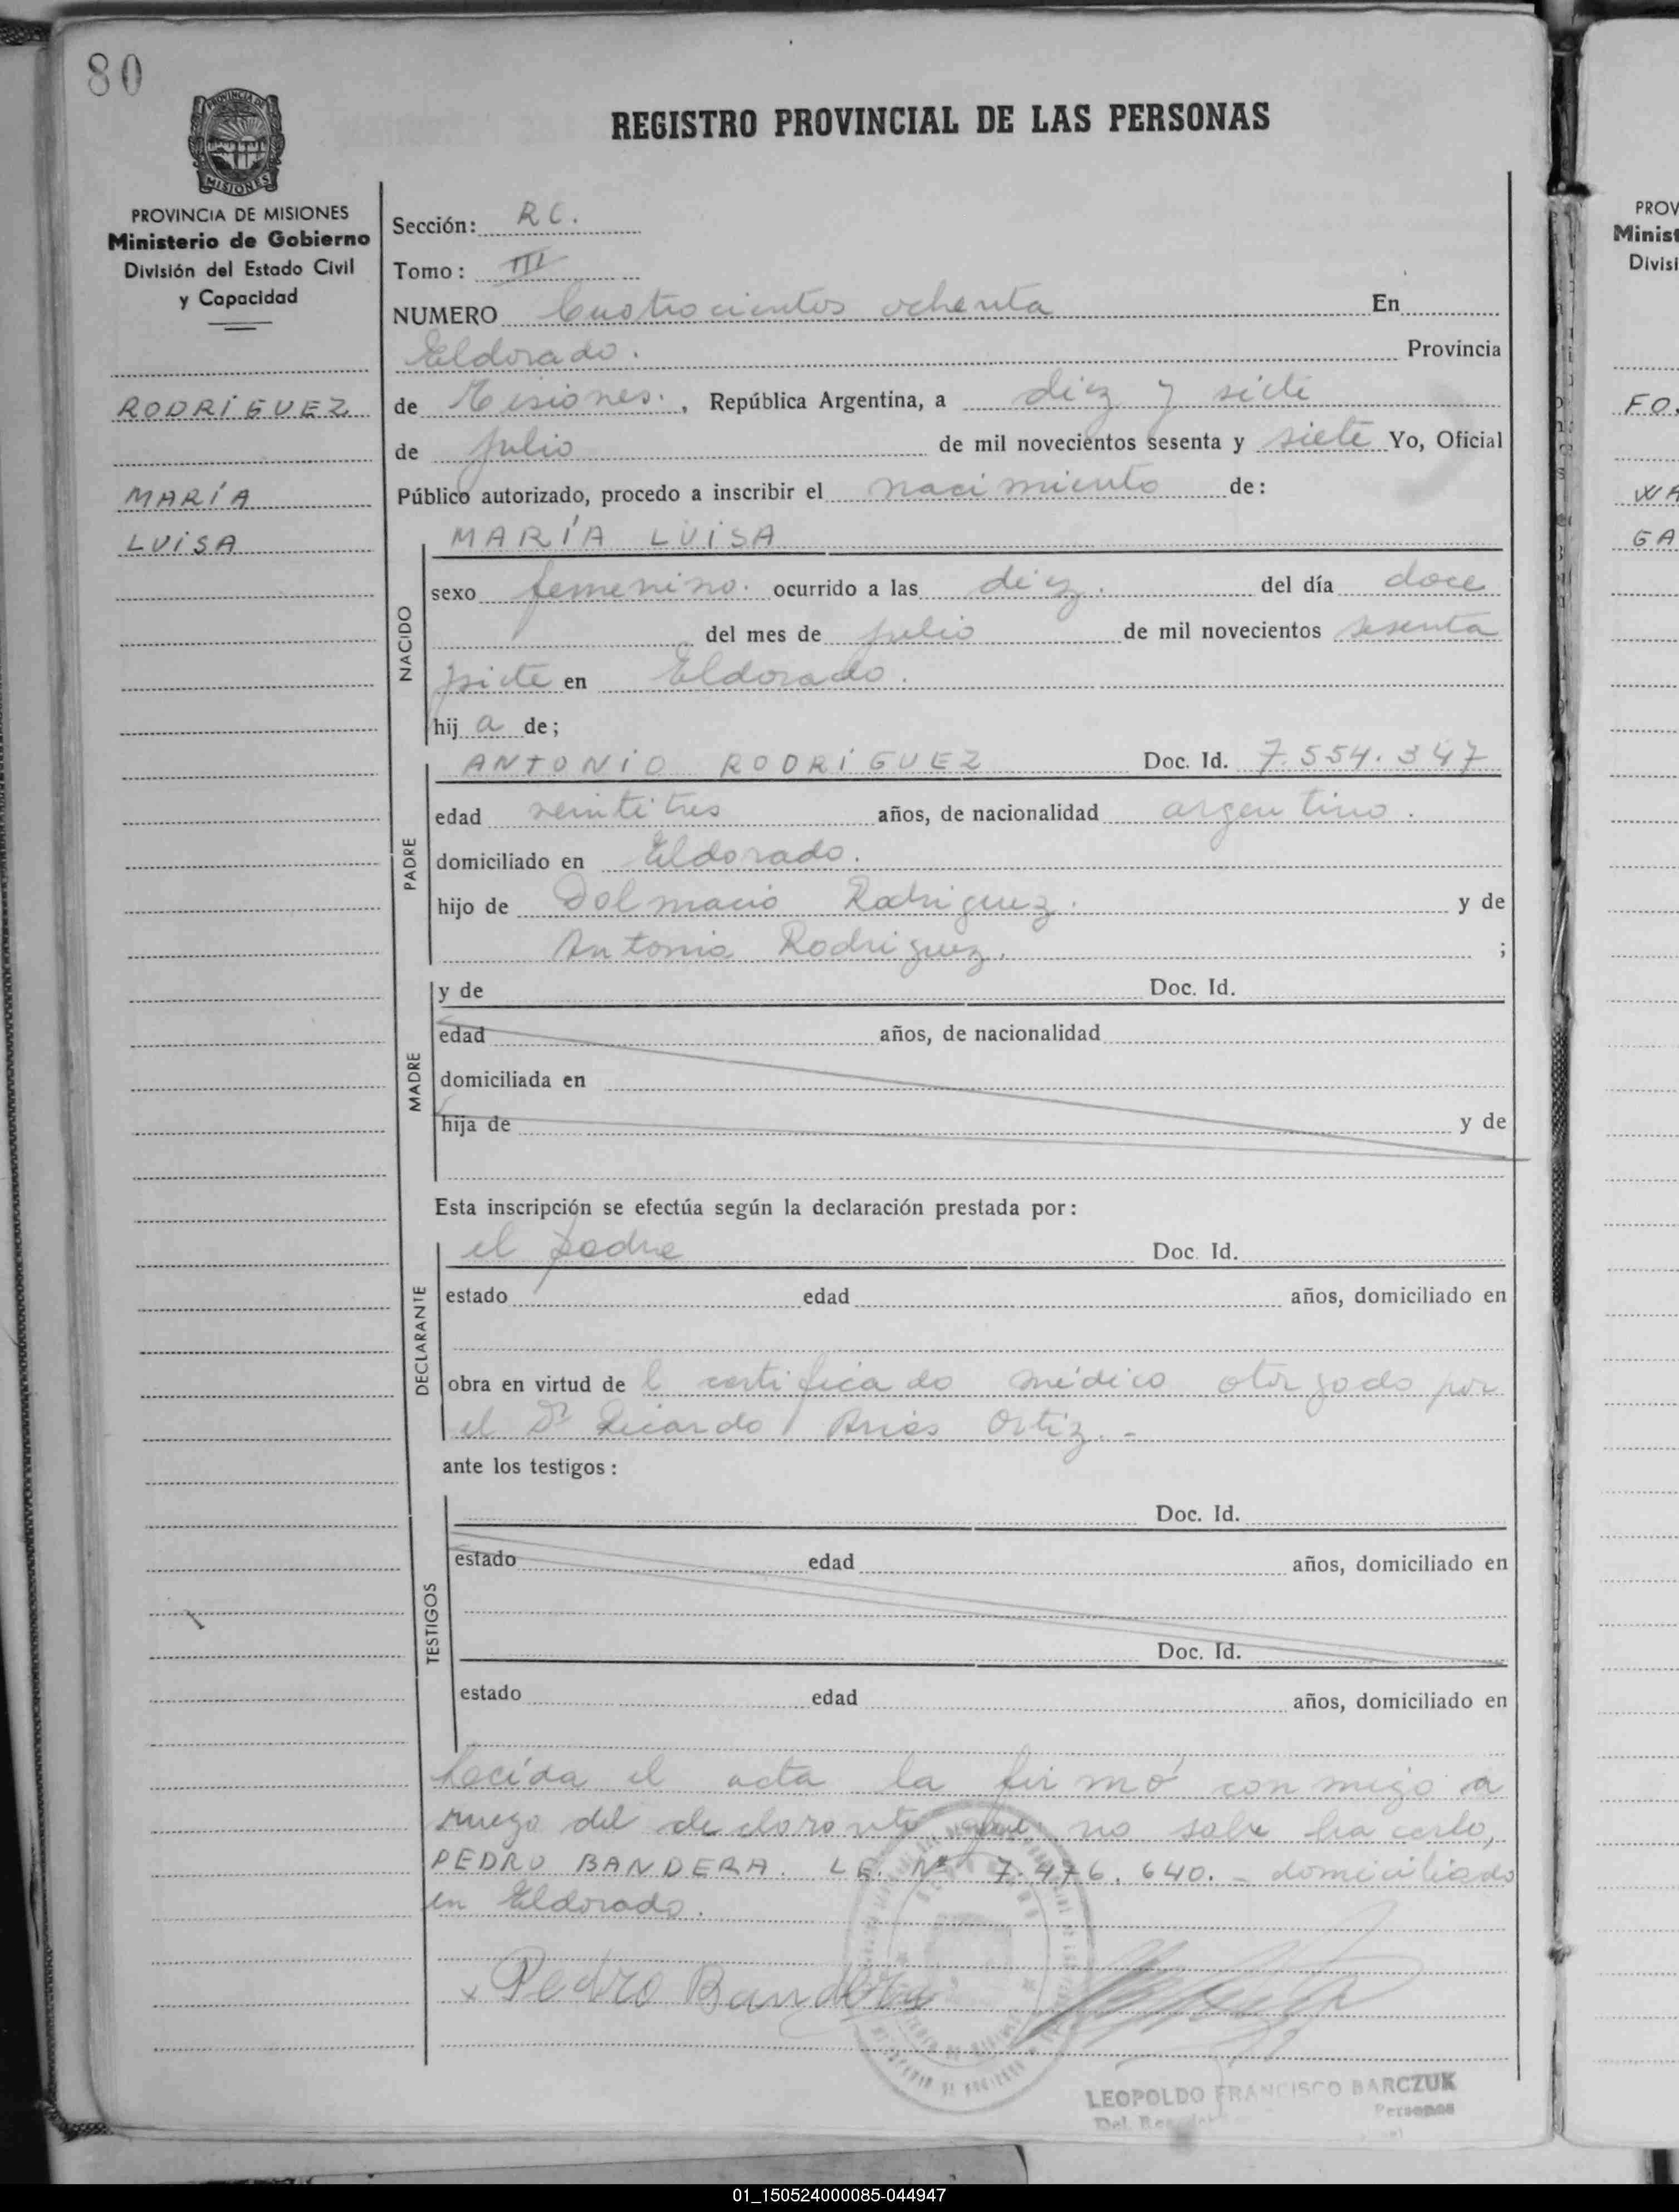 80
PROVINCIA DE
MISIONES
REGISTRO PROVINCIAL DE LAS PERSONAS
PROVINCIA DE MISIONES
Ministerio de Gobierno
División del Estado Civil
y Capacidad
RODRÍGUEZ
MARÍA
LUISA
Sección: R C.
Tomo: III
NUMERO Cuatrocientos ochenta En
Eldorado. Provincia
de Misiones. , República Argentina, a diez y siete
de julio de mil novecientos sesenta y siete Yo, Oficial
Público autorizado, procedo a inscribir el nacimiento de:
NACIDO
MARÍA LUISA
sexo femenino. ocurrido a las diez. del día doce
del mes de julio de mil novecientos sesenta
siete en Eldorado.
hij a de;
PADRE
ANTONIO RODRÍGUEZ Doc. Id. 7.554.347
edad veintitres años, de nacionalidad argentino.
domiciliado en Eldorado.
hijo de Dalmacio Rodriguez. y de
Antonia Rodriguez. ;
MADRE
y de Doc. Id.
edad años, de nacionalidad
domiciliada en
hija de y de
Esta inscripción se efectúa según la declaración prestada por:
DECLARANTE
el padre Doc. Id.
estado edad años, domiciliado en
obra en virtud de l certificado médico otorgado por
el Dr Ricardo Ortiz. -
ante los testigos:
TESTIGOS
Doc. Id.
estado edad años, domiciliado en
Doc. Id.
estado edad años, domiciliado en
Leída el acta la firmó conmigo a
ruego del declarante que no sabe hacerlo,
PEDRO BANDERA. LE. Nº 7.476.640. - domiciliado
en Eldorado.
x Pedro Bandera
LEOPOLDO FRANCISCO BARCZUK
Personas
PROV
Minist
Divisi
FO
WA
GA
01_150524000085-044947